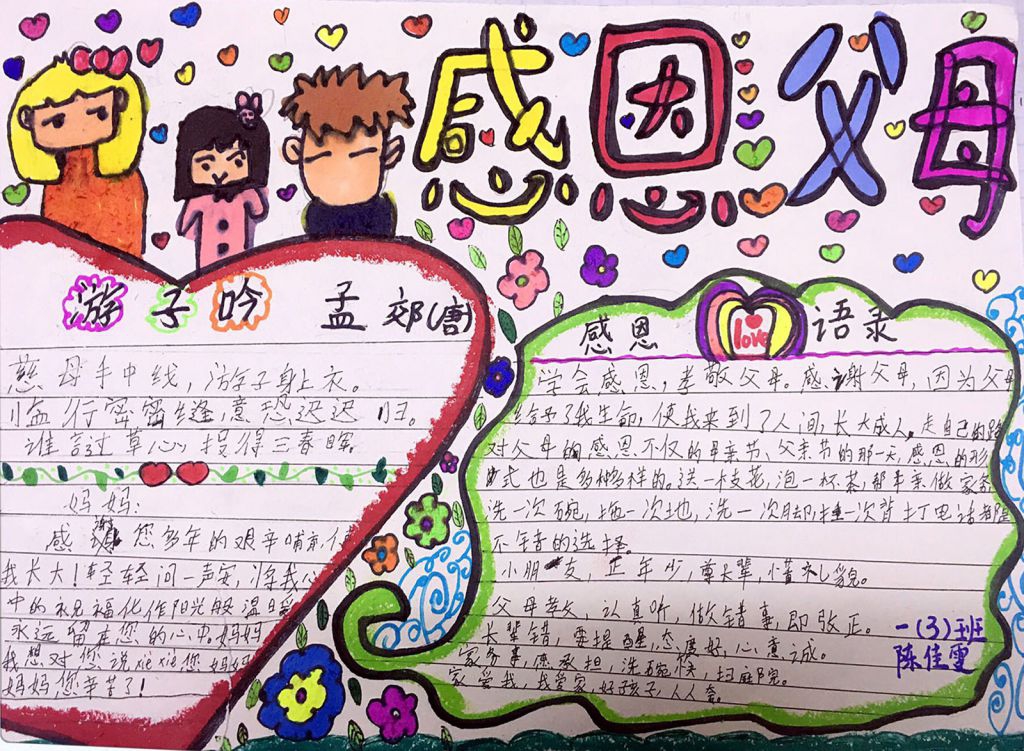 感恩父母
游子吟 孟郊(唐)
慈母手中线,游子身上衣。
临行密密缝,意恐迟迟归。
谁言过草心报得三春晖。
妈妈:
感谢您多年的艰辛哺育使
我长大!轻轻问一声安,将我心
中的祝福化作阳光般温暖
永远留在您的心中。妈妈
我想对您说xiè xiè您妈妈
妈妈您辛苦了!
感恩 love 语录
学会感恩,孝敬父母。感谢父母,因为父母
给予了我生命,使我来到了人间,长大成人,走自己的路
对父母的感恩不仅的母亲节、父亲节的那一天,感恩的形
式也是多种多样的。送一枝花,泡一杯茶,帮母亲做家务
洗一次碗,拖一次地,洗一次脚,捶一次背打电话都是
不错的选择。
小朋友,正年少,尊长辈,懂礼貌。
父母教,认真听,做错事,即改正。
长辈错,要提醒,态度好,心意诚。
家务事,愿承担,洗碗筷,扫庭院。
家爱我,我爱家,好孩子,人人夸。
一(3)班
陈佳雪